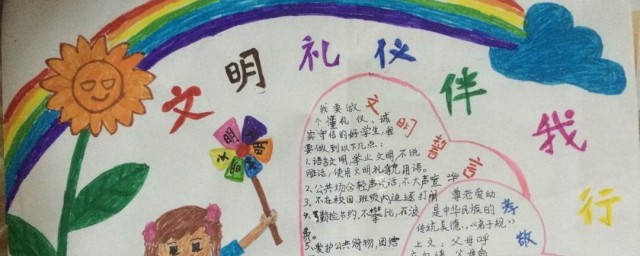 文明礼仪伴我行
文明
文明誓言
我要做
个懂礼仪、诚
实守信的好学生,我
要做到以下几点:
1.语言文明,举止文明,不说
脏话,使用文明礼貌用语。
2、公共场合轻声说话,不大声喧华
3、不在校园、班级内追逐打闹
4、勤俭节约,不攀比,不浪
费。
5、爱护公共财物,团结
孝敬
尊老爱幼
是中华民族的
传统美德。《弟子规》
上文:父母呼